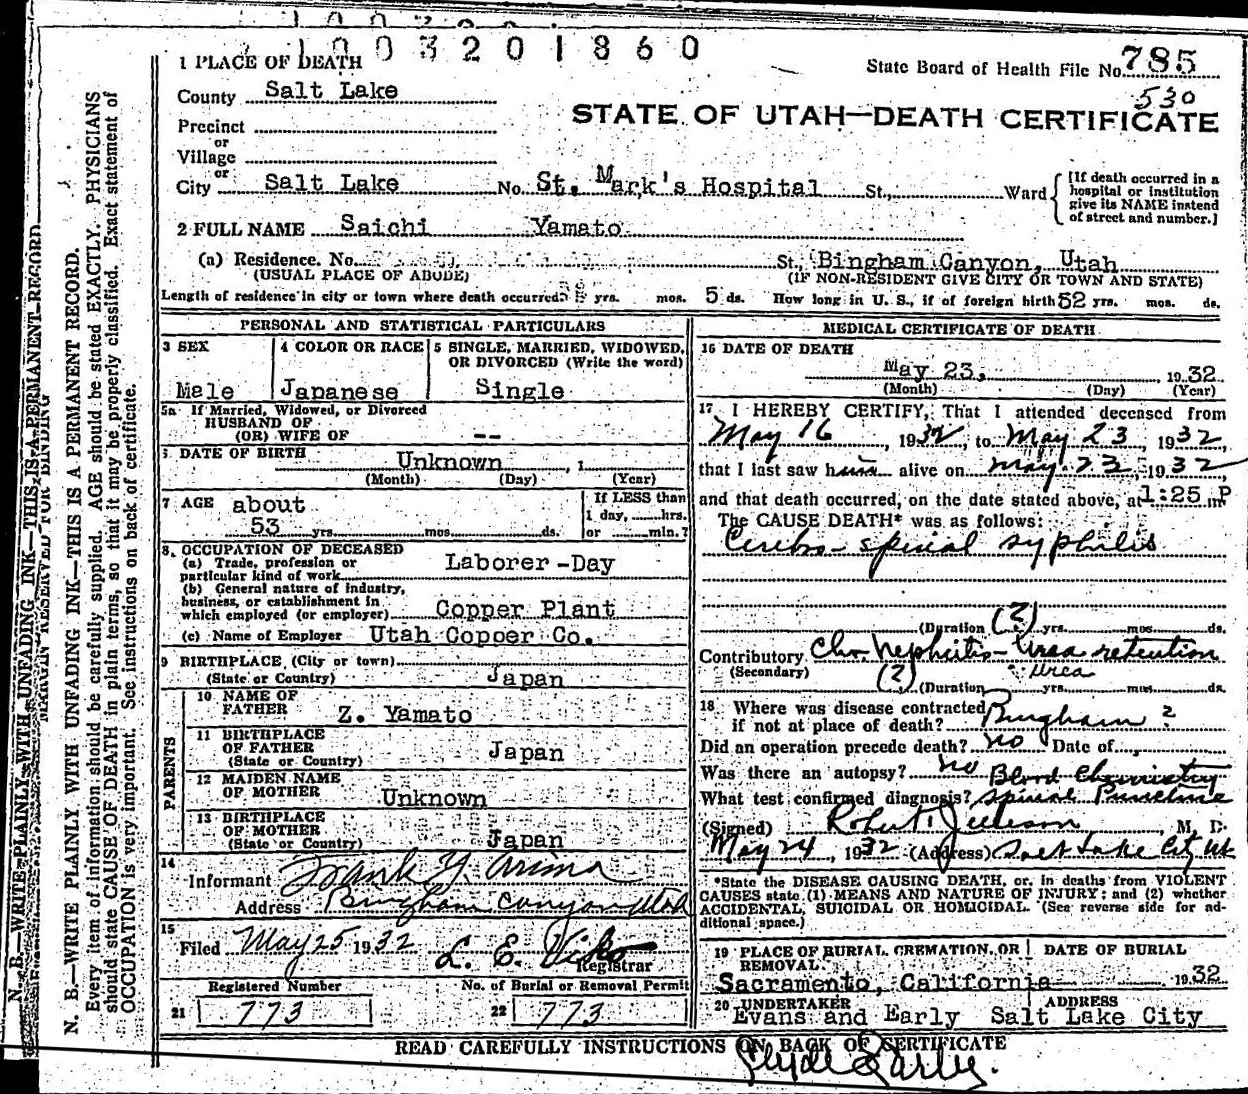 1003201860
1 PLACE OF DEATH
State Board of Health File No. 785
530
County Salt Lake
STATE OF UTAH—DEATH CERTIFICATE
Precinct
or
Village
or
City Salt Lake No. St. Mark's Hospital St., Ward
[If death occurred in a hospital or institution give its NAME instead of street and number.]
2 FULL NAME Saichi Yamato
(a) Residence. No. St., Bingham Canyon, Utah
(USUAL PLACE OF ABODE) (IF NON-RESIDENT GIVE CITY OR TOWN AND STATE)
Length of residence in city or town where death occurred yrs. mos. 5 ds. How long in U. S., if of foreign birth 52 yrs. mos. ds.
PERSONAL AND STATISTICAL PARTICULARS
3 SEX
Male
4 COLOR OR RACE
Japanese
5 SINGLE, MARRIED, WIDOWED,
OR DIVORCED (Write the word)
Single
5a If Married, Widowed, or Divorced
HUSBAND OF
(OR) WIFE OF --
DATE OF BIRTH Unknown
(Month) (Day) (Year)
7 AGE about
53 yrs. mos. ds.
If LESS than
1 day, hrs.
or min.?
8. OCCUPATION OF DECEASED
(a) Trade, profession or
particular kind of work Laborer-Day
(b) General nature of industry,
business, or establishment in
which employed (or employer) Copper Plant
(c) Name of Employer Utah Copper Co.
9 BIRTHPLACE (City or town)
(State or Country) Japan
PARENTS
10 NAME OF
FATHER Z. Yamato
11 BIRTHPLACE
OF FATHER
(State or Country) Japan
12 MAIDEN NAME
OF MOTHER Unknown
13 BIRTHPLACE
OF MOTHER
(State or Country) Japan
14
Informant Frank Y. Arima
Address Bingham Canyon Utah
15
Filed May 25 1932 L. E. Registrar
Registered Number No. of Burial or Removal Permit
21 773 22 773
MEDICAL CERTIFICATE OF DEATH
16 DATE OF DEATH
May 23, 1932
(Month) (Day) (Year)
17 I HEREBY CERTIFY, That I attended deceased from
May 16, 1932, to May 23 1932,
that I last saw him alive on May 23, 1932,
and that death occurred, on the date stated above, at 1:25 P m
The CAUSE DEATH* was as follows:
Cerebro-spinal syphilis
(Duration (?) yrs. mos. ds.
Contributory Chr. Nephritis - Urea retention
(Secondary) Urea
(?) (Duration yrs. mos. ds.
18 Where was disease contracted
if not at place of death? Bingham ?
Did an operation precede death? no Date of
Was there an autopsy? no Blood Chemistry
What test confirmed diagnosis? Spinal Puncture
(Signed) Robert Jellison, M. D.
May 24, 1932 (Address) Salt Lake City Ut
*State the DISEASE CAUSING DEATH, or, in deaths from VIOLENT
CAUSES state (1) MEANS AND NATURE OF INJURY; and (2) whether
ACCIDENTAL, SUICIDAL OR HOMICIDAL. (See reverse side for ad-
ditional space.)
19 PLACE OF BURIAL, CREMATION, OR
REMOVAL.
DATE OF BURIAL
Sacramento, California 1932
20 UNDERTAKER ADDRESS
Evans and Early Salt Lake City
READ CAREFULLY INSTRUCTIONS ON BACK OF CERTIFICATE
Clyde Early.
N. B.—WRITE PLAINLY WITH UNFADING INK—THIS IS A PERMANENT RECORD
MARGIN RESERVED FOR BINDING
N. B.—WRITE PLAINLY WITH UNFADING INK—THIS IS A PERMANENT RECORD.
Every item of information should be carefully supplied. AGE should be stated EXACTLY. PHYSICIANS
should state CAUSE OF DEATH in plain terms, so that it may be properly classified. Exact statement of
OCCUPATION is very important. See instructions on back of certificate.